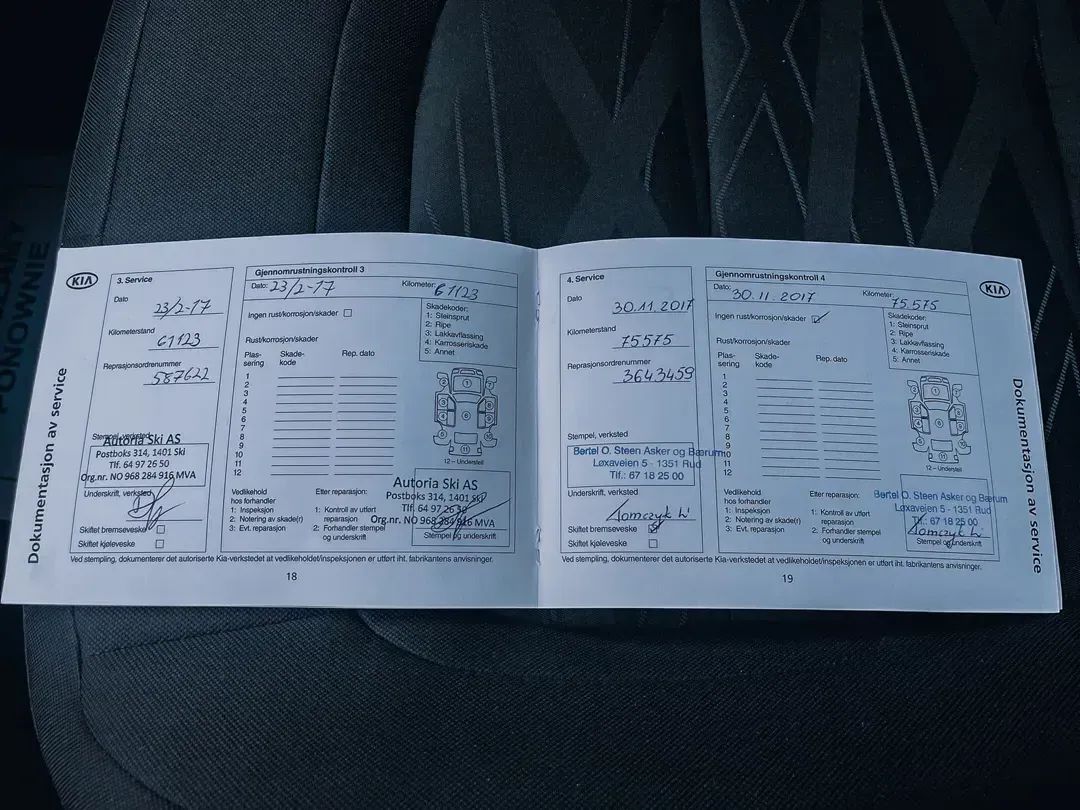 PONOWNIE
KIA
Dokumentasjon av service
3. Service
Dato
23/2-17
Kilometerstand
61123
Reprasjonsordrenummer
587622
Stempel, verksted
Autoria Ski AS
Postboks 314, 1401 Ski
Tlf. 64 97 26 50
Org.nr. NO 968 284 916 MVA
Underskrift, verksted
Skiftet bremseveske
Skiftet kjøleveske
Gjennomrustningskontroll 3
Dato: 23/2-17 Kilometer: 61123
Ingen rust/korrosjon/skader
Rust/korrosjon/skader
Plas-
sering
Skade-
kode
Rep. dato
1
2
3
4
5
6
7
8
9
10
11
12
Skadekoder:
1: Steinsprut
2: Ripe
3: Lakkavflassing
4: Karrosseriskade
5: Annet
12 – Understell
Vedlikehold
hos forhandler
1: Inspeksjon
2: Notering av skade(r)
3: Evt. reparasjon
Etter reparasjon:
1: Kontroll av utført
reparasjon
2: Forhandler stempel
og underskrift
Autoria Ski AS
Postboks 314, 1401 Ski
Tlf. 64 97 26 50
Org.nr. NO 968 284 916 MVA
Stempel og underskrift
Ved stempling, dokumenterer det autoriserte Kia-verkstedet at vedlikeholdet/inspeksjonen er utført iht. fabrikantens anvisninger.
18
4. Service
Dato
30.11.2017
Kilometerstand
75575
Reprasjonsordrenummer
3643459
Stempel, verksted
Bertel O. Steen Asker og Bærum
Løxaveien 5 - 1351 Rud
Tlf.: 67 18 25 00
Underskrift, verksted
Tomczyk Ł
Skiftet bremseveske
Skiftet kjøleveske
Gjennomrustningskontroll 4
Dato: 30.11.2017 Kilometer: 75.575
Ingen rust/korrosjon/skader
Rust/korrosjon/skader
Plas-
sering
Skade-
kode
Rep. dato
1
2
3
4
5
6
7
8
9
10
11
12
Skadekoder:
1: Steinsprut
2: Ripe
3: Lakkavflassing
4: Karrosseriskade
5: Annet
12 – Understell
Vedlikehold
hos forhandler
1: Inspeksjon
2: Notering av skade(r)
3: Evt. reparasjon
Etter reparasjon:
1: Kontroll av utført
reparasjon
2: Forhandler stempel
og underskrift
Bertel O. Steen Asker og Bærum
Løxaveien 5 - 1351 Rud
Tlf.: 67 18 25 00
Tomczyk Ł
Stempel og underskrift
Ved stempling, dokumenterer det autoriserte Kia-verkstedet at vedlikeholdet/inspeksjonen er utført iht. fabrikantens anvisninger.
19
KIA
Dokumentasjon av service